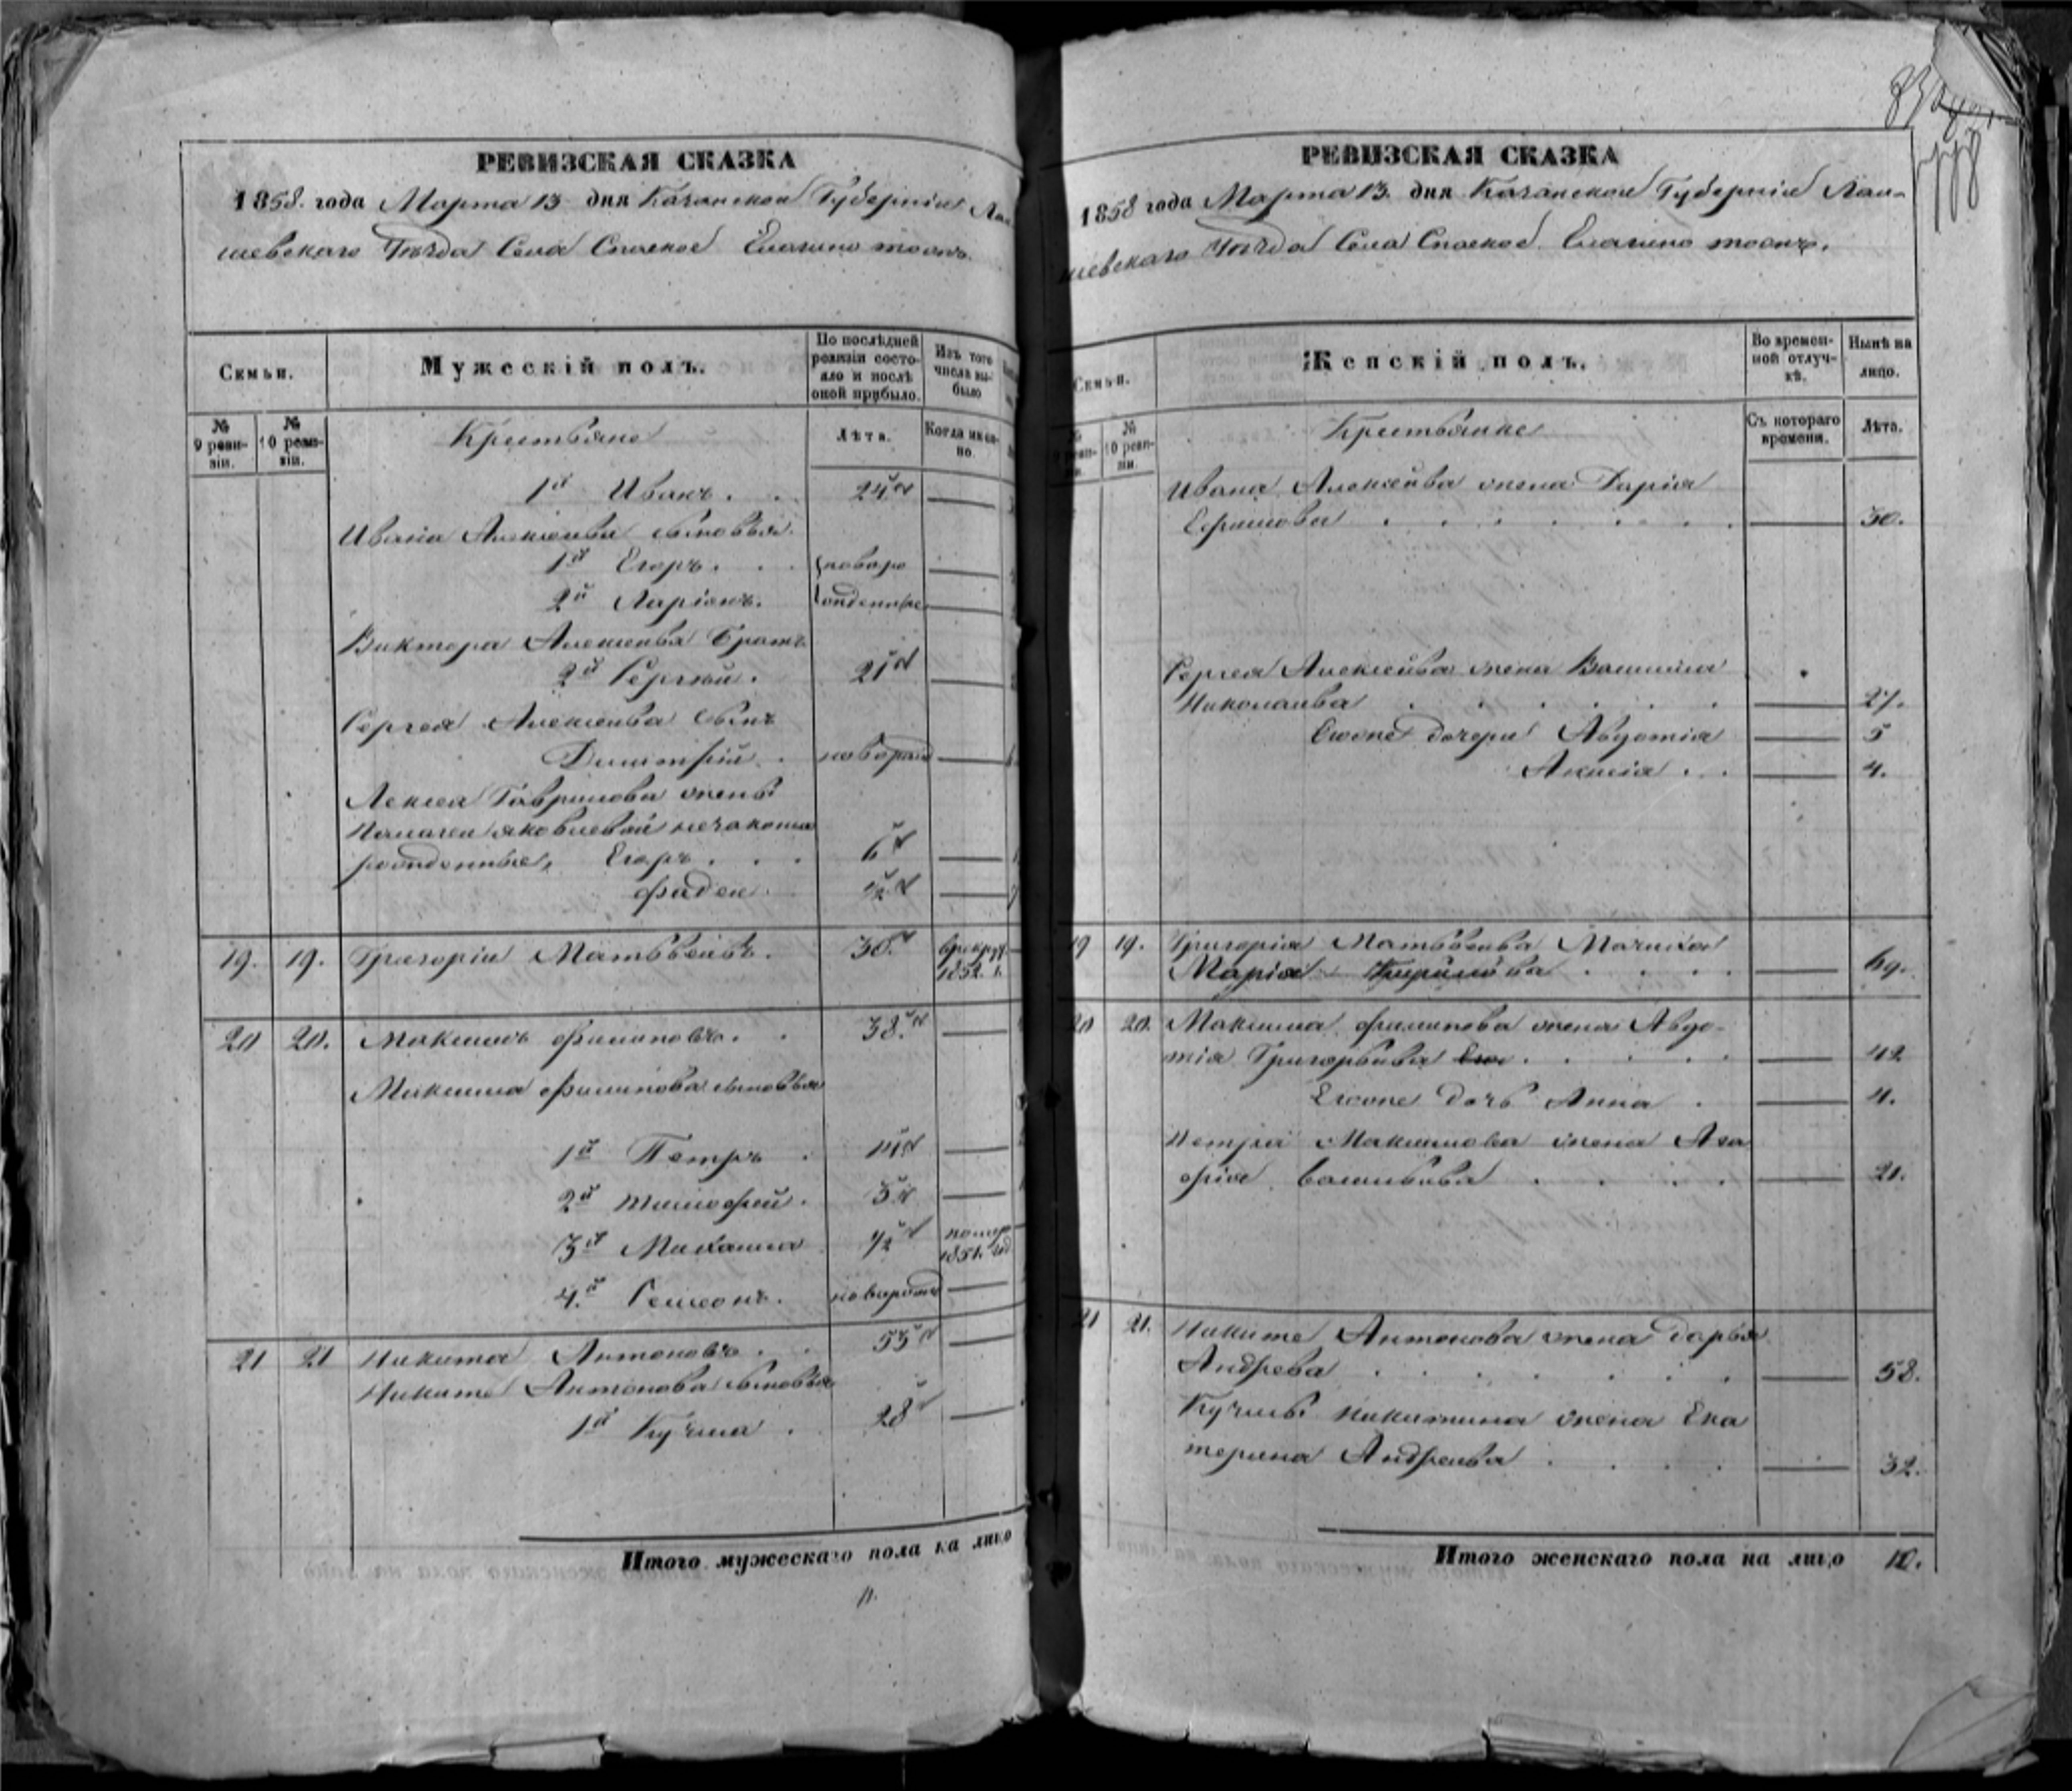 РЕВИЗСКАЯ СКАЗКА
1858. года Марта 13 дня Казанской Губерніи Лаи
шевскаго Уѣзда Села Спаское
Семьи.
Мужескій полъ.
По послѣдней ревизіи состояло и послѣ оной прибыло.
Изъ того числа выбыло
№ 9 ревизіи.
№ 10 ревизіи.
Крестьяне
Лѣта.
Когда именно.
1й Иванъ. . . 24
Ивана Алексѣева сыновья
1й Егоръ. . . новоро
2й Ларіонъ. жденные
Виктора Алексѣева Братъ
2й Сергѣй. 21
Сергея Алексѣева сынъ
Димитрій. новорож
Алексѣя Гаврилова жены
Пелагеи Яковлевой незаконно
рожденные, Егоръ . . . 6
Фадей. 1/2
19. 19. Григорій Матвѣевъ. 30. в рекруты 1852. г.
20 20. Максимъ Филиповъ. . 38.
Максима Филипова сыновья
1й Петръ .
2й Тимофей. 3
3й Михаила 1/2 помер 1851. год
4.й Семеонъ. новорож
21 21 Никита Антоновъ . . 55
Никиты Антонова сыновья
1й Кузма . 28
Итого мужескаго пола на лицо
11.
РЕВИЗСКАЯ СКАЗКА
1858 года Марта 13. дня Казанской Губерніи Лаи-
шевскаго Уѣзда Села Спаское
Семьи.
Женскій полъ.
Во временной отлучкѣ.
Нынѣ на лицо.
№ 10 ревизіи.
Крестьянке
Съ котораго времени.
Лѣта.
Ивана Алексѣйва жена Дарія
Ефимова . . . . . . . 30.
Сергея Алексѣйва жена Василиса
Николаива . . . . . 27.
Еивоне дочери Авдотія 5
Акилія . . 4.
19 19. Григорія Матвѣева Мачиха
Марія . . . . 69.
20 20. Максима Филипова жена Авдо-
тія Григорьева . . . . 42
Еивоне дочь Анна . 4.
Петра Максимова жена Ага
фія Васильева . . . . 21.
21 21. Никите Антонова жена Дарья
Андрева . . . . . . 58.
Кузмы Никитина жена Ека
терина Андреива . . . . 32.
Итого женскаго пола на лицо 10.